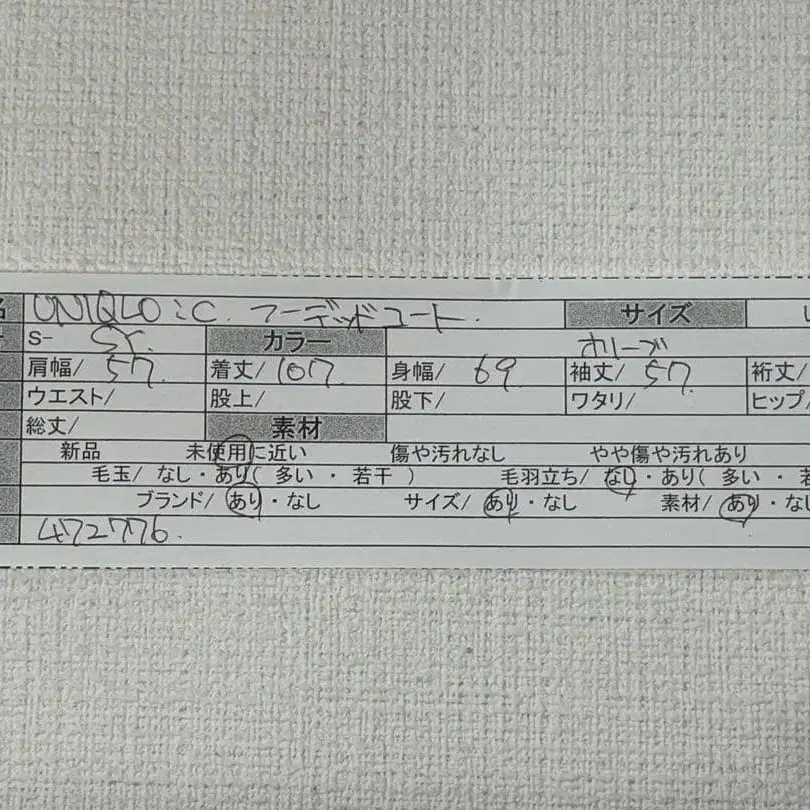 名 UNIQLO:C. フーデッドコート. サイズ L
S- カラー オリーブ
肩幅/ 57. 着丈/ 107. 身幅/ 69 袖丈/ 57. 裄丈/
ウエスト/ 股上/ 股下/ ワタリ/ ヒップ/
総丈/ 素材
新品 未使用に近い 傷や汚れなし やや傷や汚れあり
毛玉/ なし・あり( 多い ・ 若干 ) 毛羽立ち/ なし・あり( 多い ・
ブランド/ あり・なし サイズ/ あり・なし 素材/ あり・な
472776.